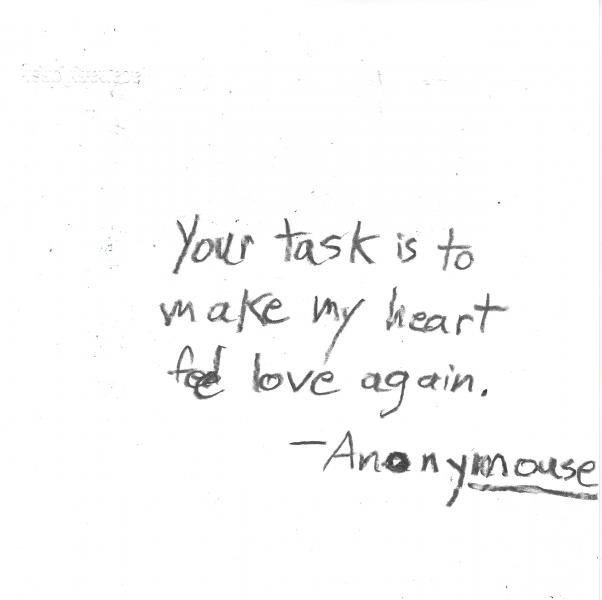 Your task is to
make my heart
feel love again.
-Anonymouse